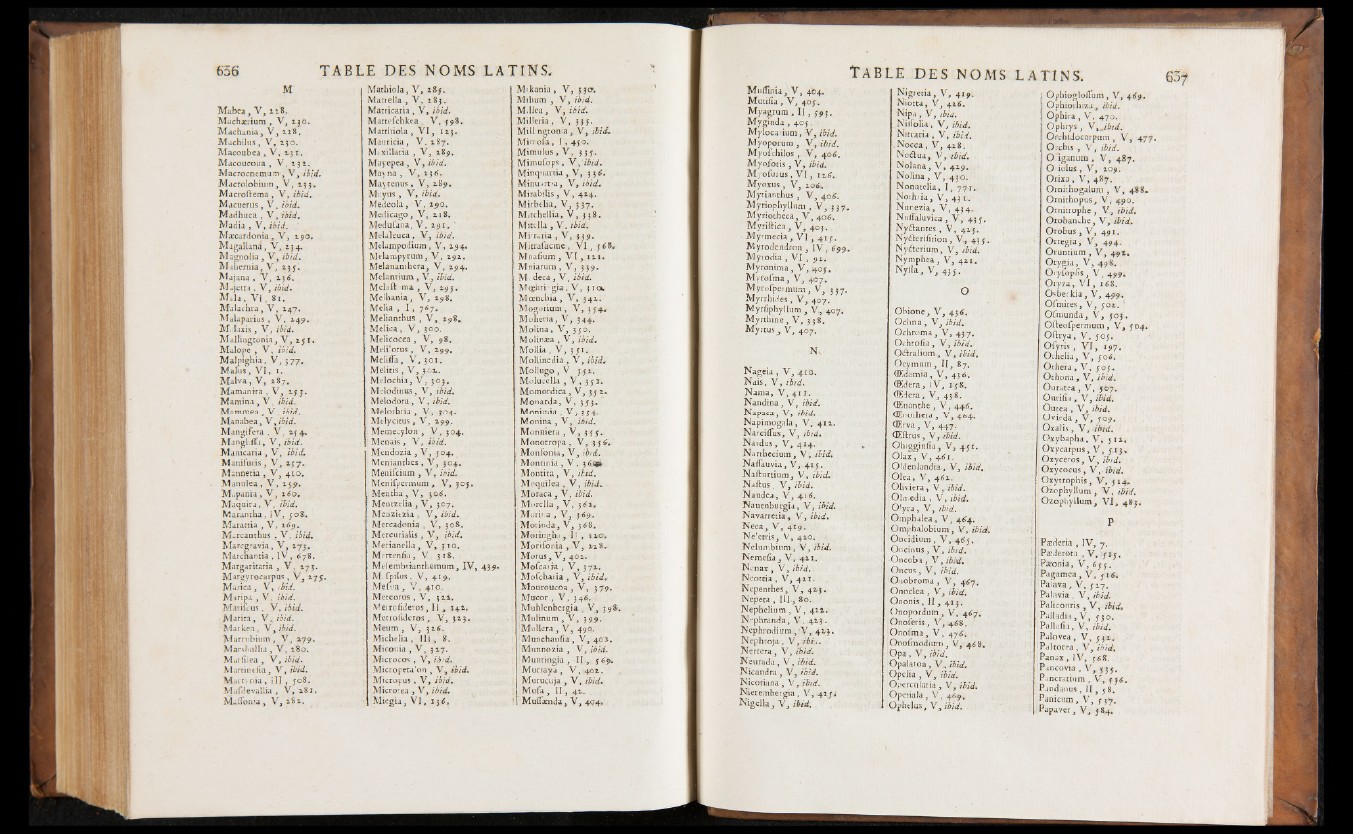 636 TABLE DES NOMS LATINS.
M
Mabea, V, 228.
Machærium, V, 230.
Machania, V, 228.
Machilus, V, 230.
Macoubea, V, 231.
Macoucoua, V, 232.
Macrocnemum, V, ibid.
Macrolobium, V, 233.
Macrostema, V, ibid.
Macuerus, V, ibid.
Madhuca, V, ibid.
Madia, V, ibid.
Mæcardonia, V, 290.
Magallana, V, 234.
Magnolia, V, ibid.
Mahernia, V, 235.
Majana, V, 236.
Majeta, V, ibid.
Mala, VI, 81.
Malachra, V, 247.
Malaparius, V, 249.
Malaxis, V, ibid.
Mallingtonia, V, 251.
Malope, V, ibid.
Malpighia, V, 577.
Malus, VI, 1.
Malva, V, 287.
Mamanira, V, 253.
Mamina, V, ibid.
Mammea, V, ibid.
Manabea, V, ibid.
Mangifera, V, 254.
Manglissa, V, ibid.
Manicaria, V, ibid.
Manisuris, V, 257.
Mannetia, V, 410.
Manulea, V, 259.
Mapania, V, 260.
Maquira, V, ibid.
Marantha, IV, 508.
Marattia, V, 269.
Marcanthus, V, ibid.
Marcgravia, V, 273.
Marchantia, IV, 678.
Margaritaria, V, 275.
Margyrocarpus, V, 275.
Marica, V, ibid.
Maripa, V, ibid.
Mariscus, V, ibid.
Marita, V, ibid.
Markea, V, ibid.
Marrubium, V, 279.
Marshallia, V, 280.
Marsilea, V, ibid.
Martinesia, V, ibid.
Martynia, III, 508.
Masdevallia, V, 281.
Massonia, V, 282.
Mathiola, V, 285.
Matrella, V, 283.
Matricaria, V, ibid.
Mattefchkea, V, 598.
Matthiola, VI, 123.
Mauricia, V, 287.
Maxillaria, V, 289.
Mayepea, V, ibid.
Mayna, V, 236.
Maytenus, V, 289.
Mazus, V, ibid.
Medeola, V, 290.
Medicago, V, 218.
Medusana, V, 291.
Melaleuca, V, ibid.
Melampodium, V, 294.
Melampyrum, V, 292.
Melananthera, V, 294.
Melantium, V, ibid.
Melastoma, V, 295.
Melhania, V, 298.
Melia, I, 767.
Melianthus, V, 298.
Melica, V, 300.
Melicocca, V, 98.
Melilotus, V, 299.
Melissa, V, 301.
Melitis, V, 302.
Melochia, V, 303.
Melodinus, V, ibid.
Melodora, V, ibid.
Melothria, V, 304.
Melycitus, V, 299.
Memecylon, V, 304.
Menais, V, ibid.
Mendozia, V, 504.
Menianthes, V, 304.
Meniscium, V, ibid.
Menispermum, V, 305.
Mentha, V, 306.
Mentzelia, V, 307.
Menziezia, V, ibid.
Mercadonia, V, 308.
Mercurialis, V, ibid.
Merianella, V, 310.
Mertensia, V, 318.
Mesembrianthemum, IV, 439.
Mespilus, V, 419.
Messua, V, 410.
Meteorus, V, 322.
Metrosideros, II, 142.
Metrosideros, V, 323.
Meum, V, 326.
Michelia, III, 8.
Miconia, V, 327.
Microcos, V, ibid.
Micropetalon, V, ibid.
Micropus, V, ibid.
Microtea, V, ibid.
Miegia, VI, 236.
Mikania, V, 330.
Milium, V, ibid.
Millea, V, ibid.
Milleria, V, 335.
Millingtonia, V, ibid.
Mimosa, I, 450.
Mimulus, V, 335.
Mimusops, V, ibid.
Minquartia, V, 336.
Minuartia, V, ibid.
Mirabilis, V, 424.
Mirbelia, V, 337.
Mitchellia, V, 338.
Mitella, V, ibid.
Mitraria, V, 339.
Mitrasacme, VI, 568.
Mnasium, VI, 121.
Mniarum, V, 339.
Modeca, V, ibid.
Moehringia, V, 310.
Mœnchia, V, 342.
Mogorium, V, 354.
Moheria, V, 344.
Molina, V, 350.
Molinæa, V, ibid.
Mollia, V, 351.
Mollinedia, V, ibid.
Mollugo, V, 352.
Molucella, V, 352.
Momordica, V, 352.
Monarda, V, 353.
Monieria, V, 354.
Monina, V, ibid.
Monniera, V, 355.
Monotropa, V, 356.
Monsonia, V, ibid.
Montinia, V
Montira, V, ibid.
Moquilea, V, ibid.
Moraea, V, ibid.
Morella, V, 362.
Morina, V, 369.
Morinda, V, 368.
Moringha, II, 120.
Morisonia, V, 228.
Morus, V, 402.
Moscaria, V, 372.
Moscharia, V, ibid.
Mouroucoa, V, 379.
Mucor, V, 346.
Muhlenbergia, V, 398.
Mulinum, V, 399.
Mullera, V, 490.
Munchausia, V, 403.
Munnozia, V, ibid.
Muntingia, II, 569.
Murraya, V, 402.
Murucuja, V, ibid.
Musa, II, 42.
Mussænda, V, 404.
TABLE DES NOMS LATINS. 637
Mussinia, V, 404.
Mutisia, V, 405.
Myagrum, II, 593.
Myginda, 405.
Mylocarium, V, ibid.
Myoporum, V, ibid.
Myoschilos, V, 406.
Myosotis, V, ibid.
Myosurus, VI, 126.
Myoxus, V, 206.
Myrianthus, V, 406.
Myriophyllum, V, 337.
Myriotheca, V, 406.
Myristica, V, 403.
Myrmecia, VI, 415.
Myrodendron, IV, 699.
Myrodia, VI, 92.
Myronima, V, 405.
Myrosma, V, 407.
Myrospermum, V, 337.
Myrrhides, V, 407.
Myrsiphyllum, V, 407.
Myrthine, V, 338.
Myrtus, V, 407.
N.
Nageia, V, 410.
Naïs, V, ibid.
Nama, V, 411.
Nandina, V, ibid.
Napaea, V, ibid.
Napimogala, V, 412.
Narcissus, V, ibid.
Nardus, V, 414.
Narthecium, V, ibid.
Nassauvia, V, 415.
Nasturtium, V, ibid.
Nastus, V, ibid.
Nauclea, V, 416.
Nauenburgia, V, ibid.
Navarretia, V, ibid.
Neea, V, 419.
Ne'etris, V, 420.
Nelumbium, V, ibid.
Nemesia, V, 421.
Nenax, V, ibid.
Neottia, V, 421.
Nepenthes, V, 423.
Nepeta, III, 80.
Nephelium, V, 422.
Nephranda, V, 423.
Nephrodium, V, 423.
Nephroja, V, ibid.
Nertera, V, ibid.
Neurada, V, ibid.
Nicandra, V, ibid.
Nicotiana, V, ibid.
Nierembergia, V, 425.
Nigella, V, ibid.
Nigreria, V, 419.
Niotta, V, 426.
Nipa, V, ibid.
Nissolia, V, ibid.
Nitraria, V, ibid.
Nocca, V, 428.
Noctua, V, ibid.
Nolana, V, 429.
Nolina, V, 430.
Nonatelia, I, 771.
Norhria, V, 431.
Nunezia, V, 434.
Nussaluvica, V, 435.
Nyctantes, V, 425.
Nycterisition, V, 435.
Nycterium, V, ibid.
Nymphea, V, 421.
Nyssa, V, 435.
O
Obione, V, 436.
Ochna, V, ibid.
Ochroma, V, 437.
Ochrosia, V, ibid.
Octralium, V, ibid.
Ocymum, II, 87.
Œdemia, V, 436.
Œdera, IV, 158.
Œdera, V, 438.
Œnanthe, V, 446.
Œnothera, V, 464.
Œrva, V, 447.
Œstrus, V, ibid.
Ohigginsia, V, 451.
Olax, V, 461.
Oldenlandia, V, ibid.
Olea, V, 462.
Oliviera, V, ibid.
Olmedia, V, ibid.
Olyca, V, ibid.
Omphalea, V, 464.
Omphalobium, V, ibid.
Oncidium, V, 465.
Oncinus, V, ibid.
Oncoba, V, ibid.
Oncus, V, ibid.
Onobroma, V, 467.
Onoclea, V, ibid.
Ononis, II, 423.
Onopordum, V, 467.
Onoseris, V, 468.
Onosma, V, 476.
Onosmodium, V, 468.
Opa, V, ibid.
Opalatoa, V, ibid.
Opelia, V, ibid.
Opercularia, V, ibid.
Opetiola, V, 469.
Ophelus, V, ibid.
Ophioglossum, V, 469.
Ophiorhiza, ibid.
Ophira, V, 470.
Ophrys, V, ibid.
Orchidocarpum, V, 477.
Orchis, V, ibid.
Origanum, V, 487.
Oriolus, V, 209.
Orixa, V, 487.
Ornithogalum, V, 488.
Ornithopus, V, 490.
Ornitrophe, V, ibid.
Orobanche, V, ibid.
Orobus, V, 491.
Ortegia, V, 494.
Oruntium, V, 492.
Orygia, V, 498.
Orysopsis, V, 499.
Oryza, VI, 168.
Osbeckia, V, 499.
Osmites, V, 502.
Osmunda, V, 503.
Osteospermum, V, 504.
Ostrya, V, 505.
Osyris, VI, 197.
Othelia, V, 506.
Othera, V, 505.
Othona, V, ibid.
Ouratea, V, 507.
Ourisia, V, ibid.
Outea, V, ibid.
Ovieda, V, 509.
Oxalis, V, ibid.
Oxybapha, V, 512.
Oxycarpus, V, 513.
Oxyceros, V, ibid.
Oxycocus, V, ibid.
Oxytrophis, V, 514.
Ozophyllum, V, ibid.
Ozophyllum, VI, 483.
P
Pæderia, IV, 7.
Pæderota, V, 515.
Pæonia, V, 655.
Pagamea, V, 516.
Palava, V, 527.
Palavia, V, ibid.
Palicouris, V, ibid.
Palladia, V, 530.
Pallasia, V, ibid.
Palovea, V, 532.
Paltorea, V, ibid.
Panax, IV, 568.
Pancovia, V, 535.
Pancratium, V, 536.
Pandanus, II, 58.
Panicum, V, 537.
Papaver, V, 584.